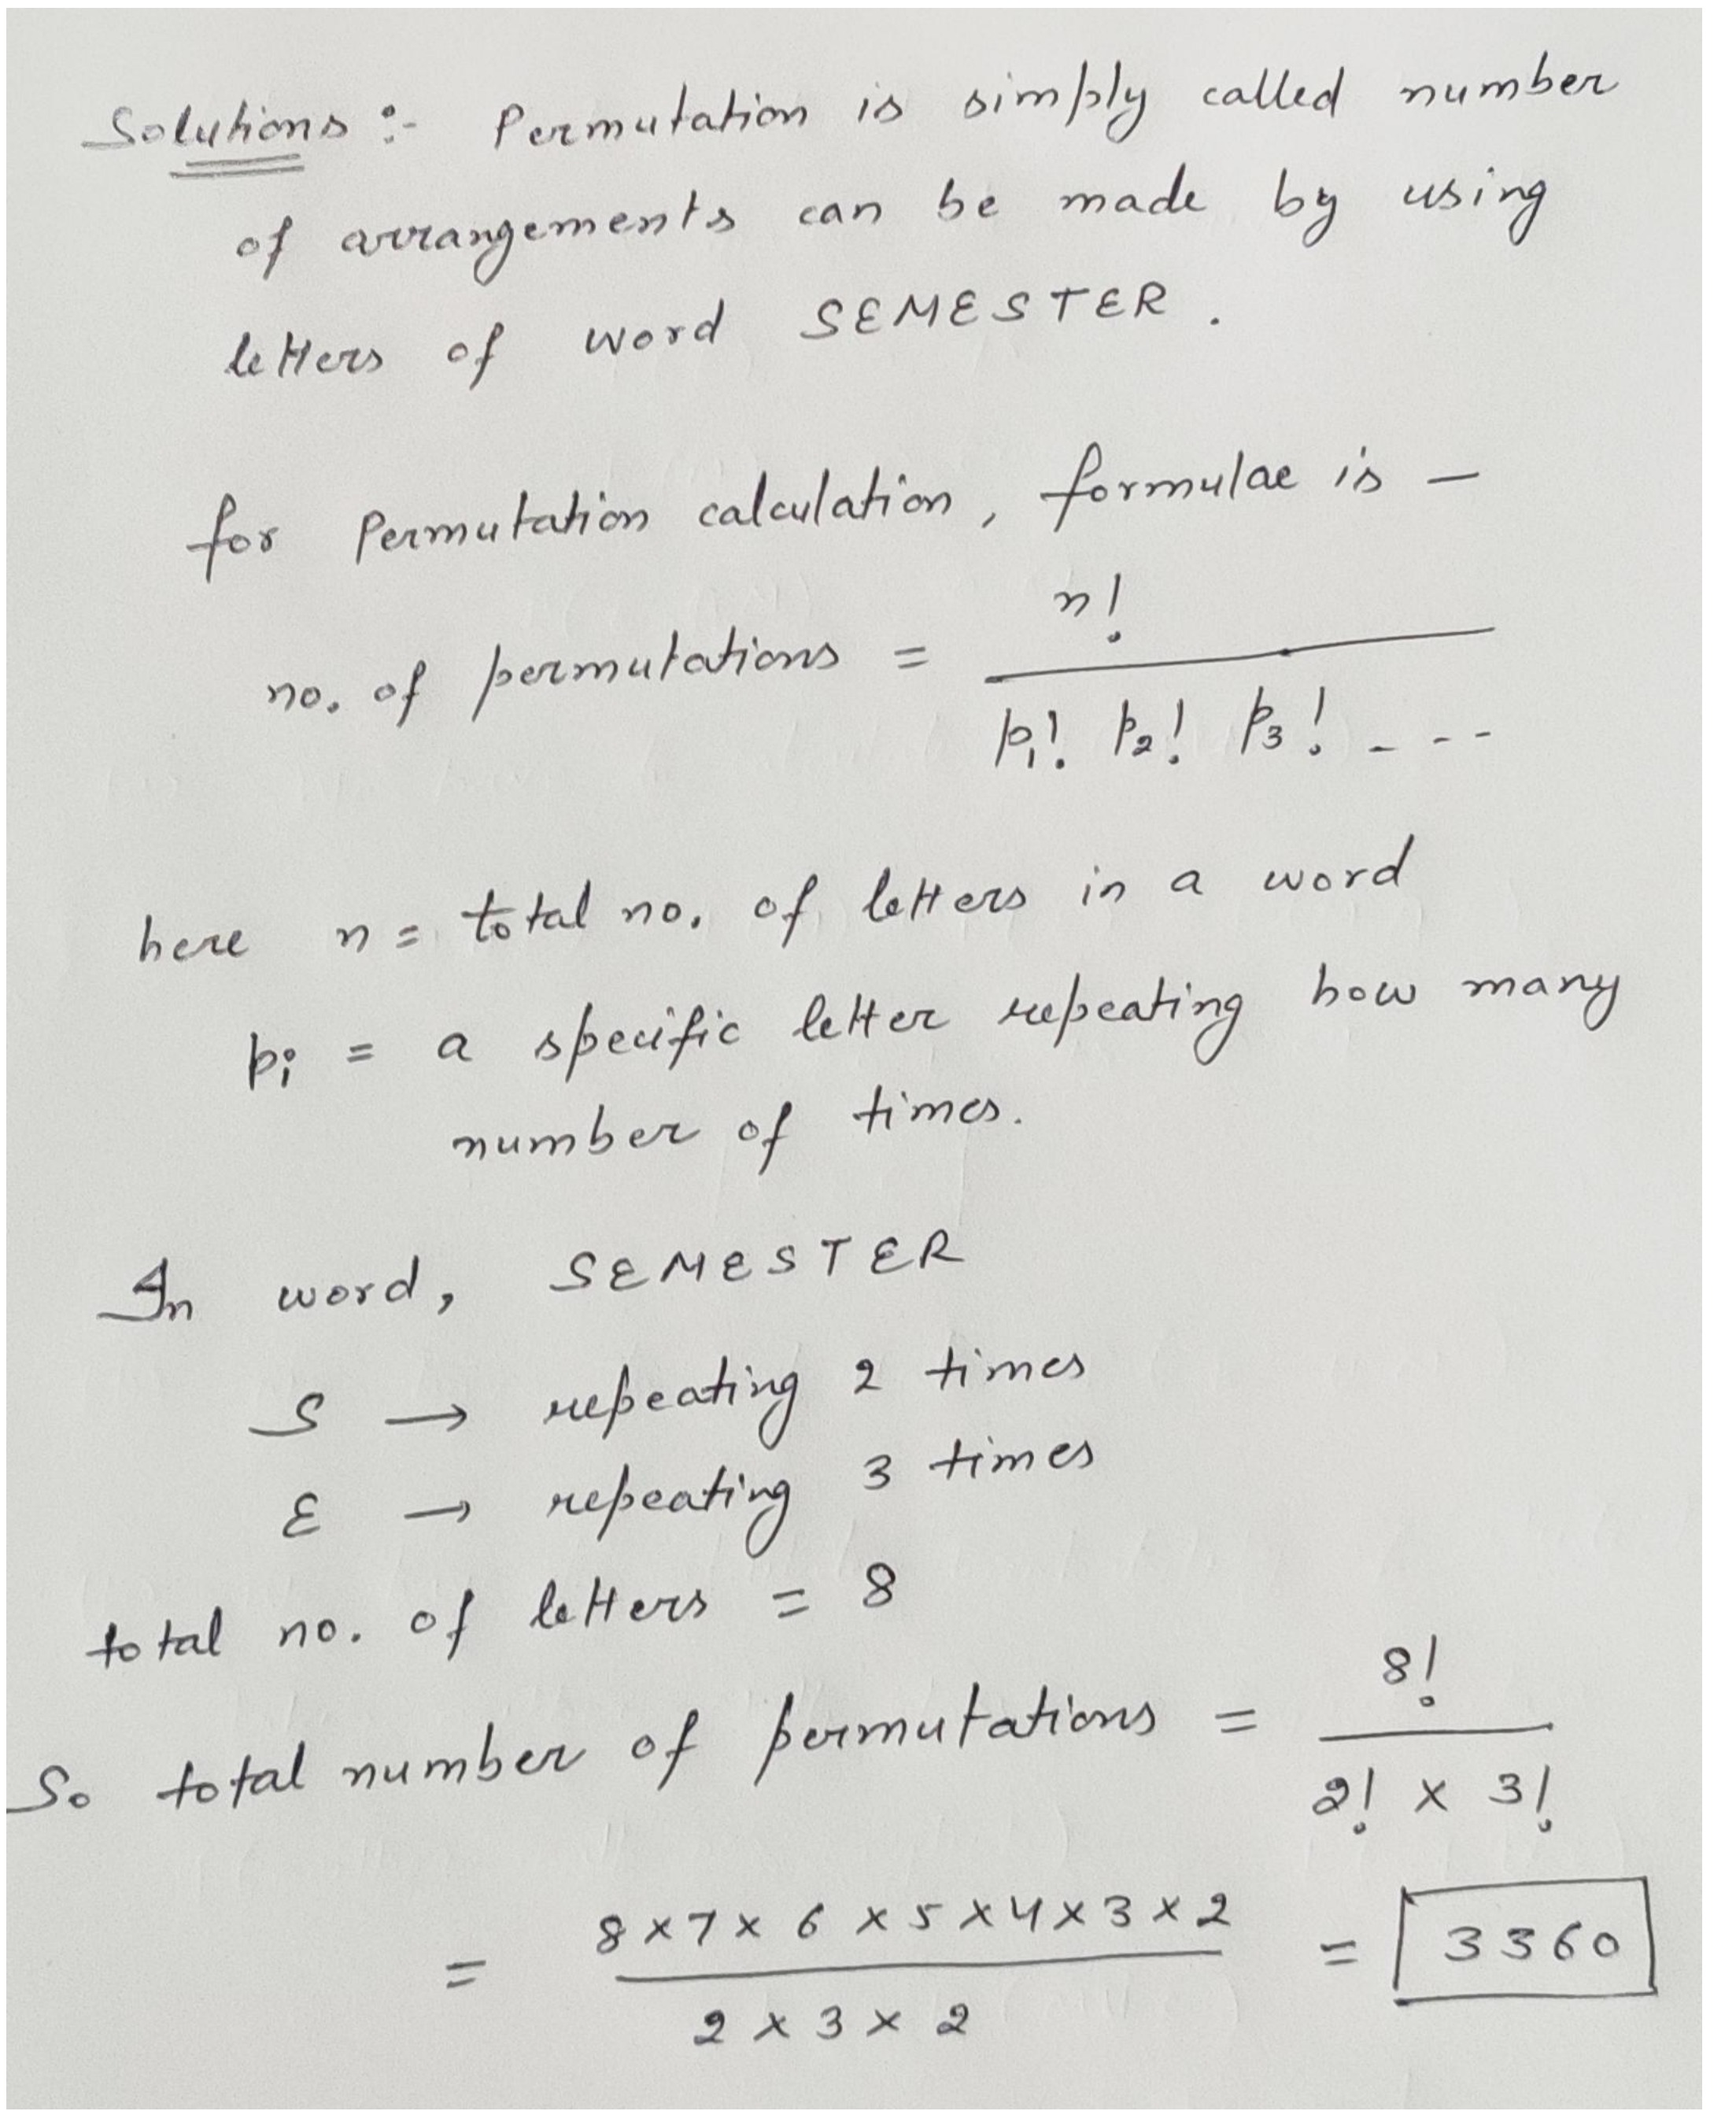 Solutions :- Permutation is simply called number
of arrangements can be made by using
letters of word SEMESTER.
for Permutation calculation, formulae is -
no. of permutations = n! / p₁! p₂! p₃! ----
here n = total no. of letters in a word
pᵢ = a specific letter repeating how many
number of times.
In word, SEMESTER
S → repeating 2 times
E → repeating 3 times
total no. of letters = 8
So total number of permutations = 8! / 2! × 3!
= 8×7×6×5×4×3×2 / 2×3×2 = 3360